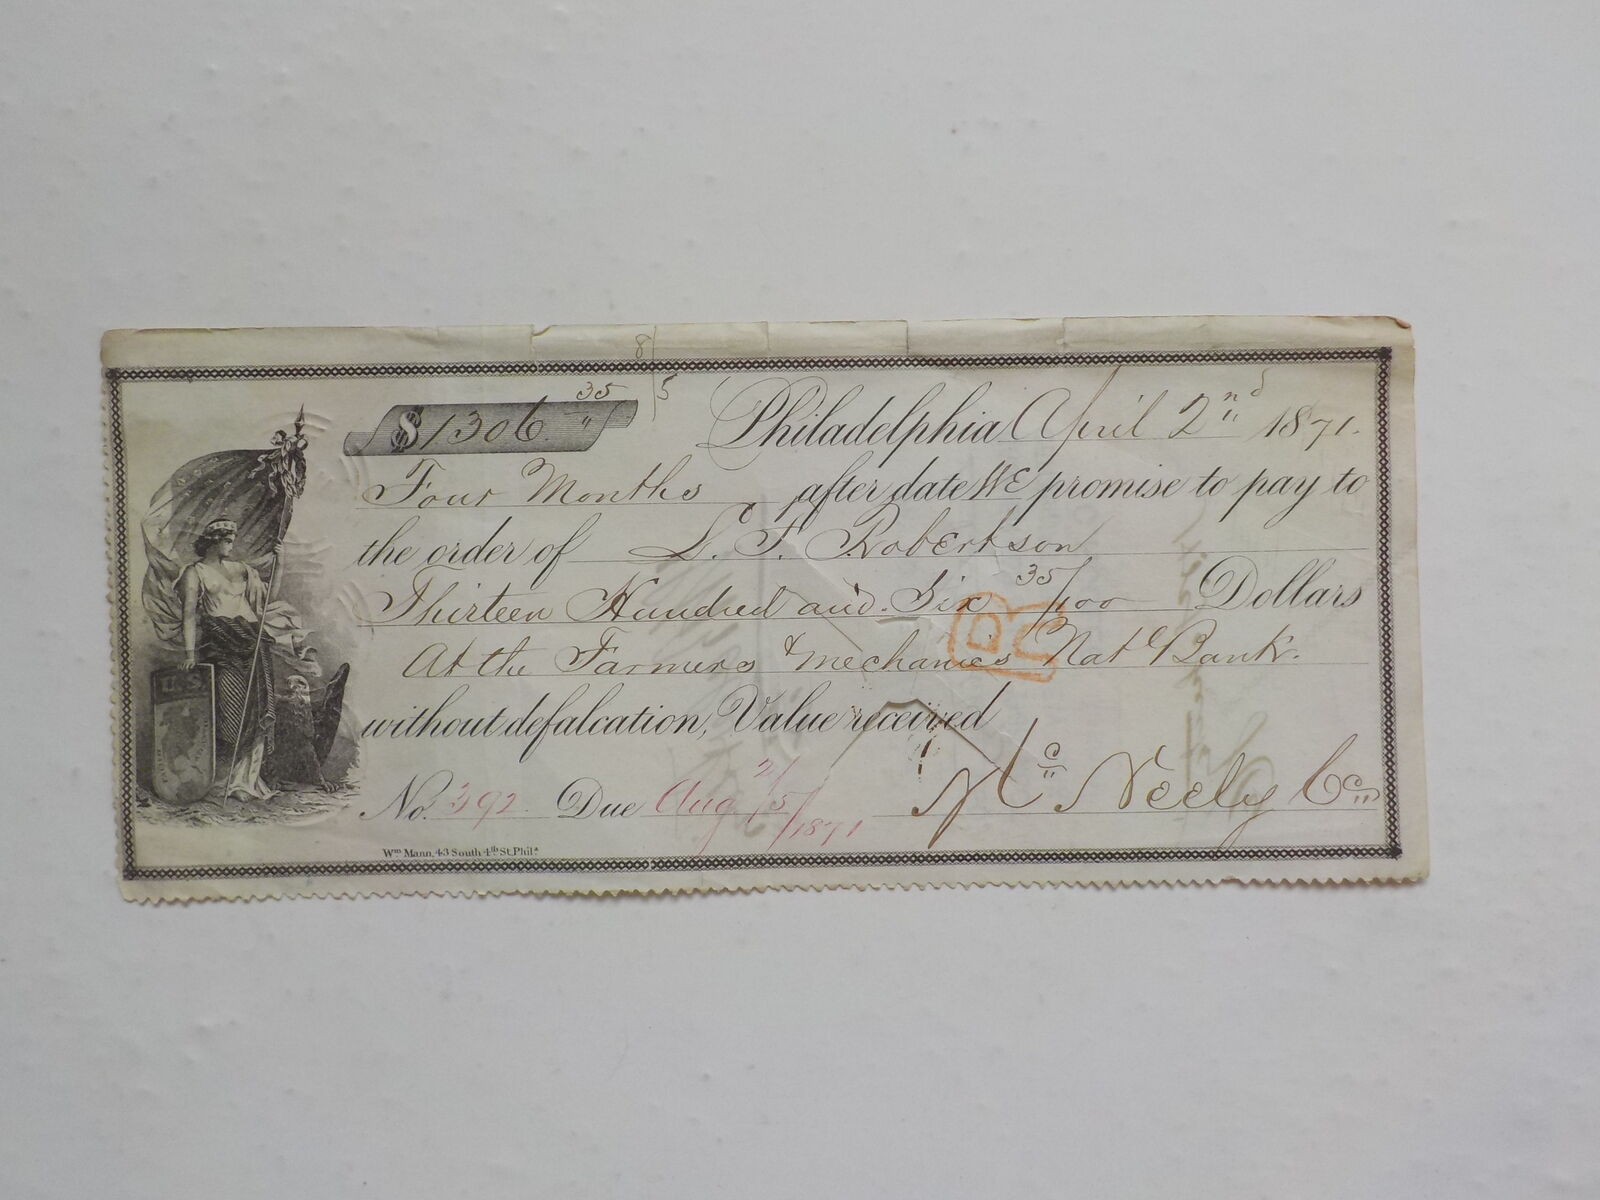 8/5
$1306 35/"
Philadelphia April 2nd 1871.
Four Months after date WE promise to pay to
the order of L. F. Robertson
Thirteen Hundred and Six 35/100 Dollars
At the Farmers & Mechanics Natl Bank.
without defalcation, Value received
No. 392 Due Aug 2/5/1871 Mc Neely & Co
Wm Mann, 43 South 4th St. Phila.
U.S.